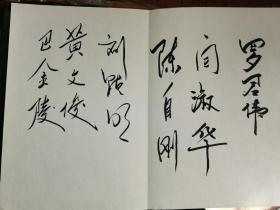 罗召伟
闫淑华
陈自刚
刘跃明
黄文俊
巴金陵